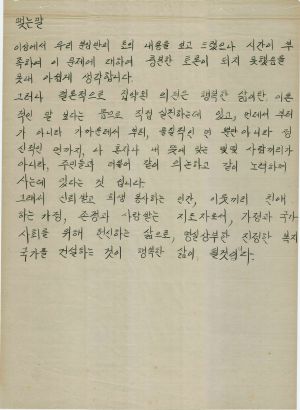 맺는말
이상에서 우리 분임반이 토의 내용을 보고 드렸으나 시간이 부
족하여 이 문제에 대하여 충분한 토론이 되지 못했음을
못내 아쉽게 생각합니다.
그러나 결론적으로 집약된 의견은 행복한 삶이란, 이론
적인 말 보다는 몸으로 직접 실천하는데 있고, 먼데서 부터
가 아니라 가까운데서 부터, 물질적인 면 뿐만아니라 정
신적인 면까지, 나 혼자나 내 뜻에 맞는 몇몇 사람끼리가
아니라, 주민들과 더불어 같이 의논하고 같이 노력하며
사는데 있다는 것 입니다.
그래서 신뢰받고 희생 봉사하는 인간, 이웃끼리 친애
하는 가정, 존경과 사랑받는 지도자로서, 가정과 국가
사회를 위해 헌신하는 삶으로, 명실상부한 진정한 복지
국가를 건설하는 것이 행복한 삶이 될것이다.